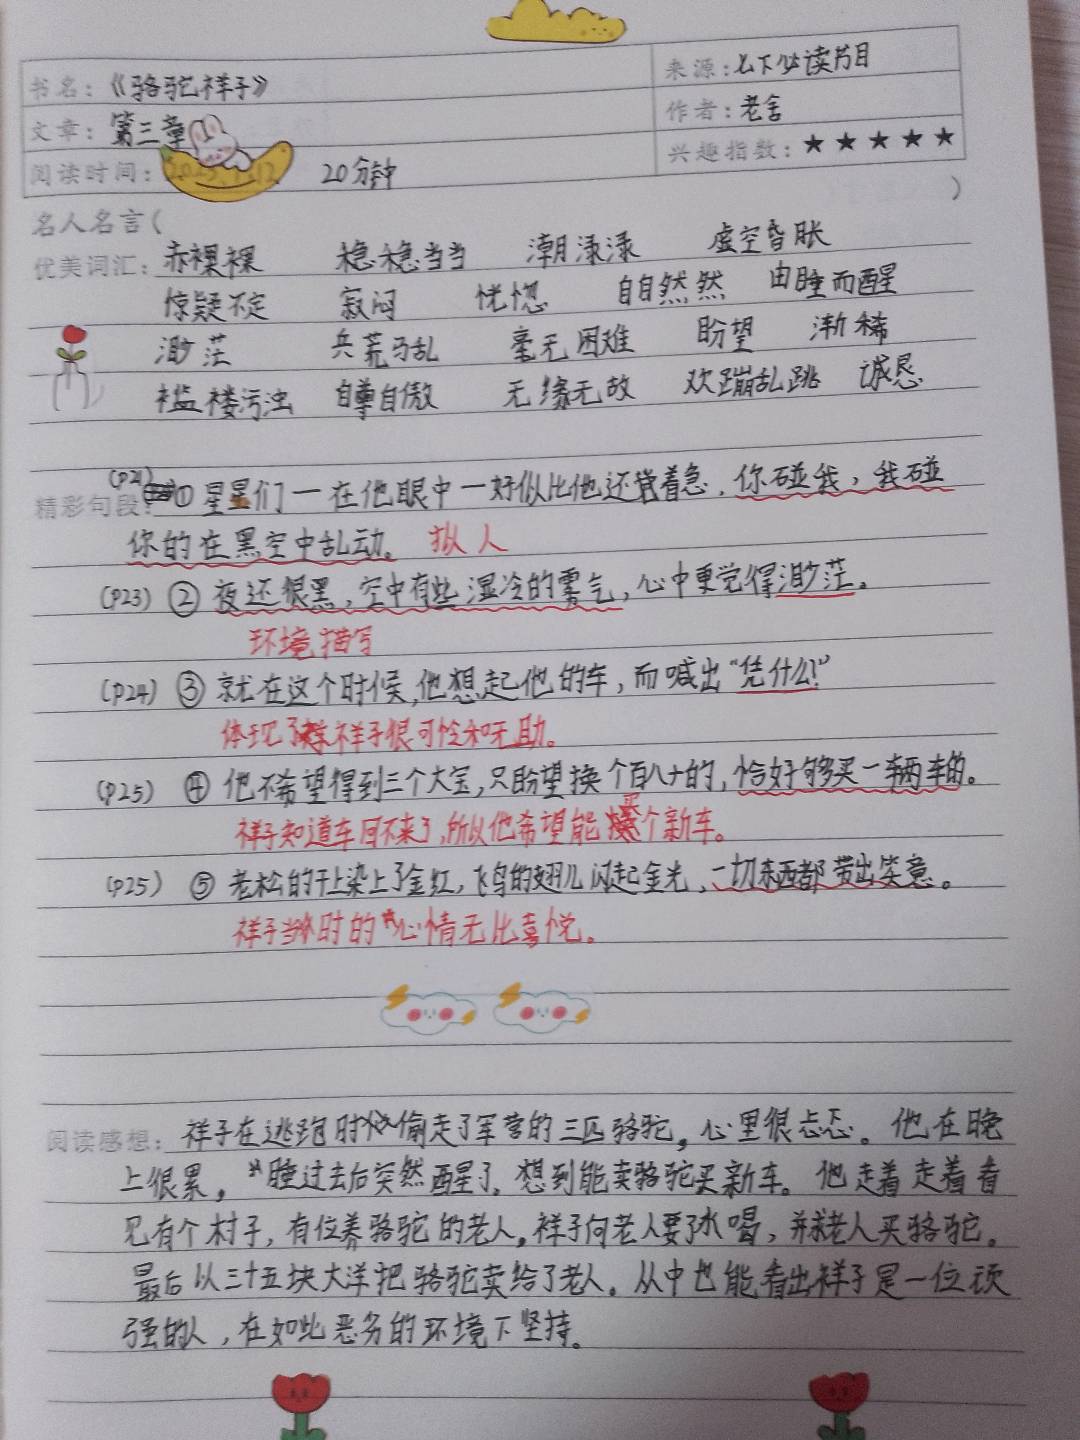 书名：《骆驼祥子》
来源：七下必读书目
文章：第三章
作者：老舍
阅读时间： 20分钟
兴趣指数：★★★★★
名人名言（ ）
优美词汇：赤裸裸 稳稳当当 潮渌渌 虚空昏胀
惊疑不定 寂闷 恍惚 自自然然 由睡而醒
渺茫 兵荒马乱 毫无困难 盼望 渐稀
褴褛污浊 自尊自傲 无缘无故 欢蹦乱跳 诚恳
(P21)
精彩句段：①星星们一在他眼中一好似比他还着急，你碰我，我碰
你的在黑空中乱动。 拟人
(P23) ②夜还很黑，空中有些湿冷的雾气，心中更觉得渺茫。
环境描写
(P24) ③就在这个时候，他想起他的车，而喊出“凭什么！”
体现了祥子很可怜和无助。
(P25) ④他不希望得到三个大宝，只盼望换个百八十的，恰好够买一辆车的。
祥子知道车回不来了，所以他希望能买个新车。
(P25) ⑤老松的干上染上了金红，飞鸟的翅儿闪起金光，一切东西都带出笑意。
祥子当时的心情无比喜悦。
阅读感想：祥子在逃跑时偷走了军营的三匹骆驼，心里很忐忑。他在晚
上很累，睡过去后突然醒了，想到能卖骆驼买新车。他走着走着看
见有个村子，有位养骆驼的老人，祥子向老人要了水喝，并求老人买骆驼。
最后以三十五块大洋把骆驼卖给了老人。从中也能看出祥子是一位顽
强的人，在如此恶劣的环境下坚持。